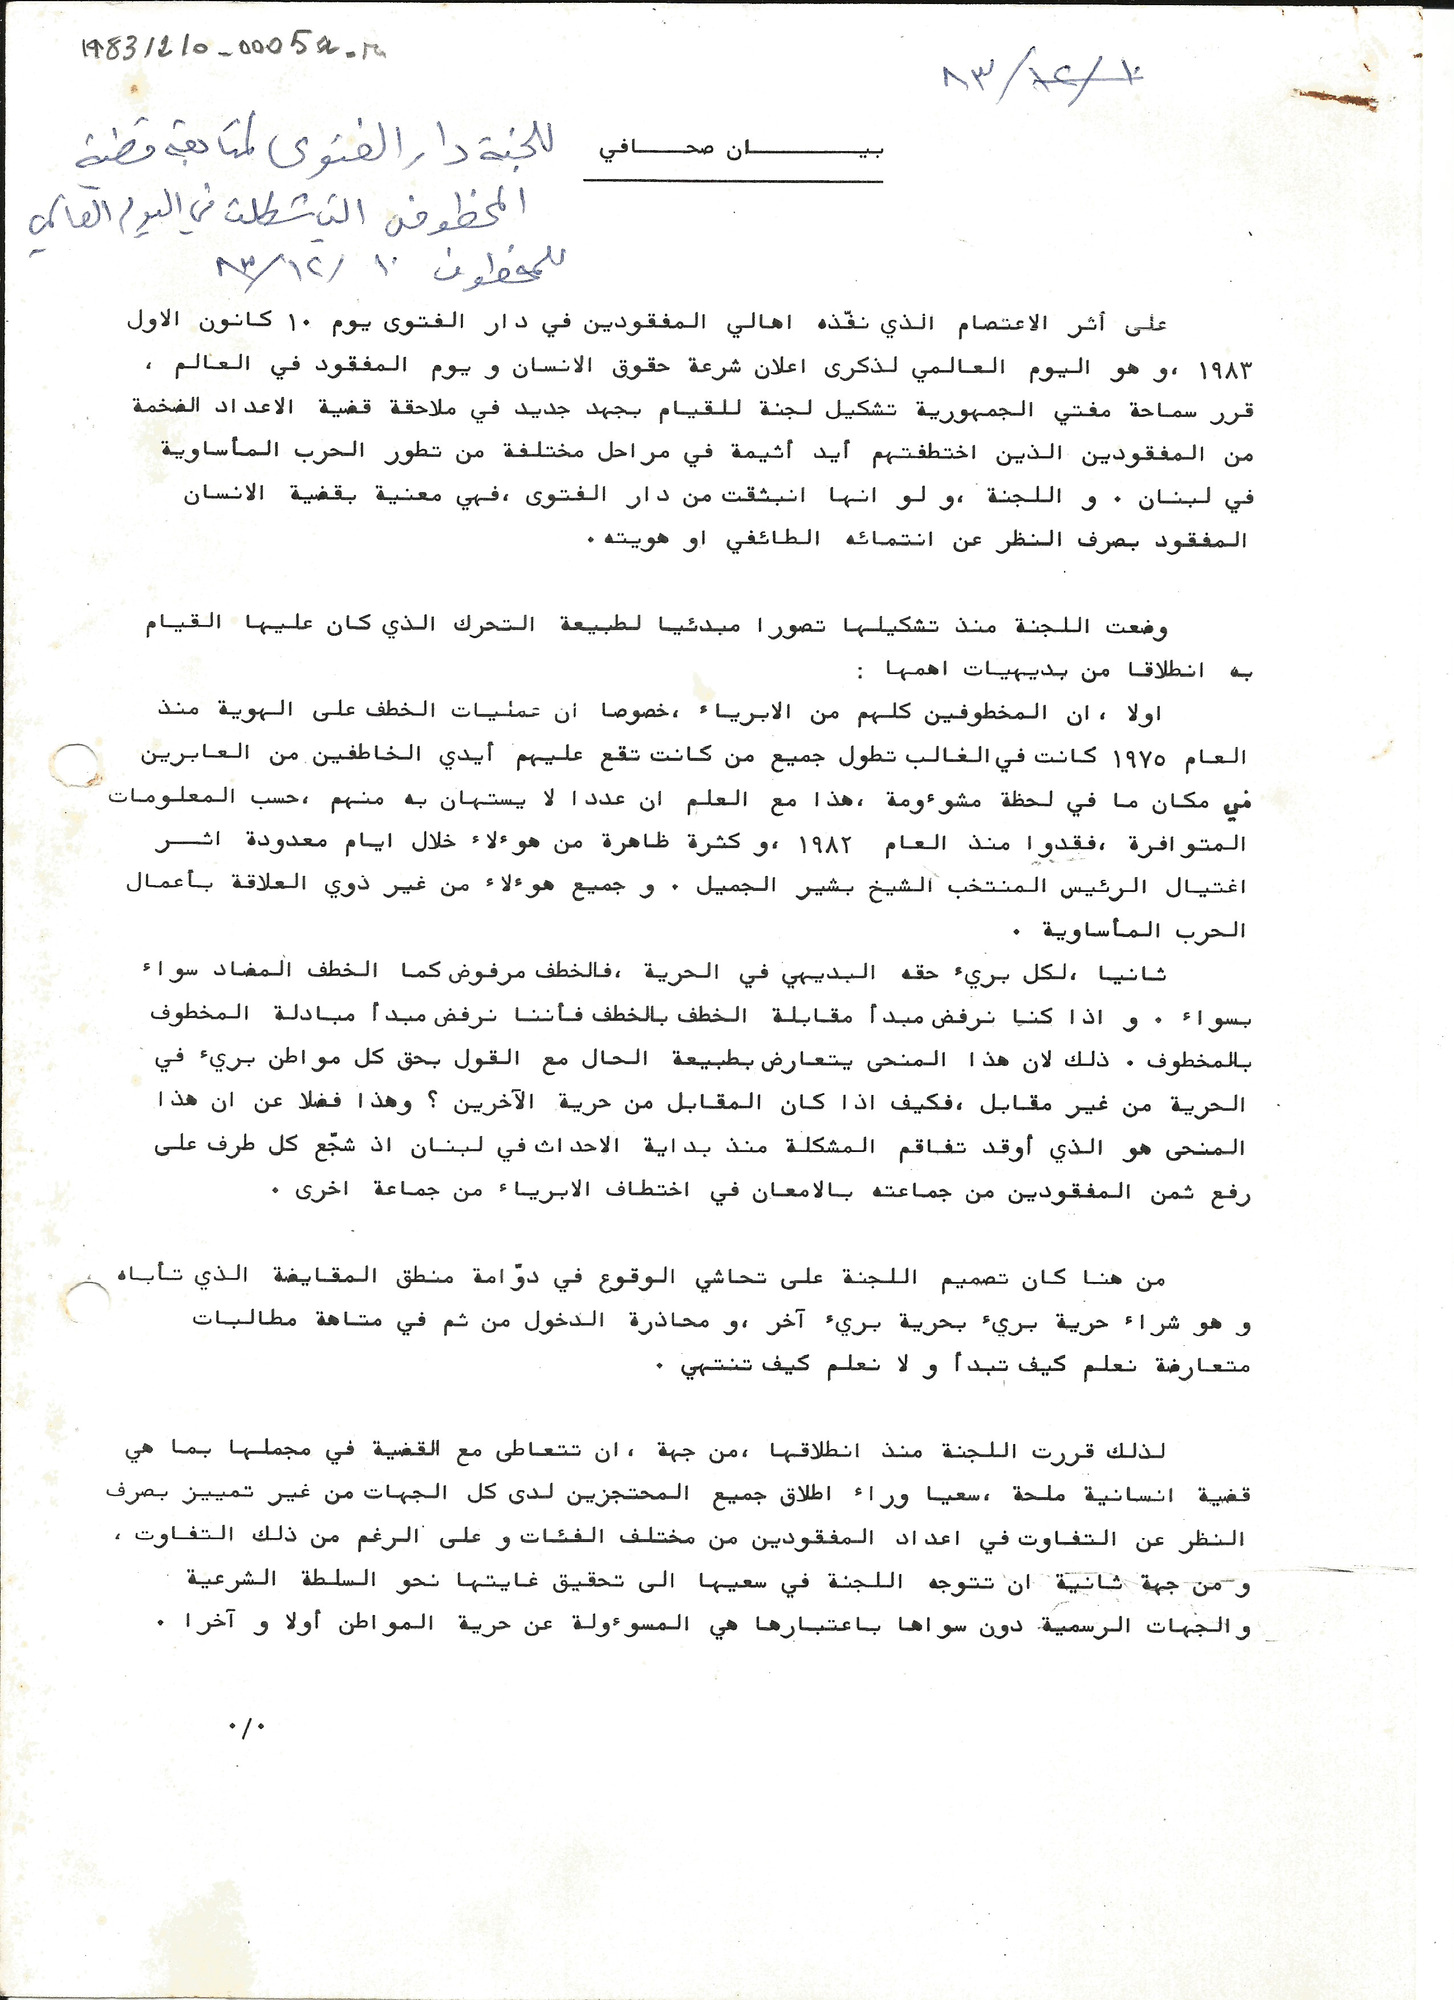 19831210-00052-
١٠/١٢/٨٣
بيــــــان صحـــافي
للجنة دار الفتوى لمتابعة قضية
المخطوفين التي شكلت في اليوم العالمي
للمخطوف ١٠/١٢/٨٣
على أثر الاعتصام الذي نفّذه اهالي المفقودين في دار الفتوى يوم ١٠ كانون الاول
١٩٨٣ ،و هو اليوم العالمي لذكرى اعلان شرعة حقوق الانسان و يوم المفقود في العالم ،
قرر سماحة مفتي الجمهورية تشكيل لجنة للقيام بجهد جديد في ملاحقة قضية الاعداد الضخمة
من المفقودين الذين اختطفتهم أيد أثيمة في مراحل مختلفة من تطور الحرب المأساوية
في لبنان . و اللجنة ،و لو انها انبثقت من دار الفتوى ،فهي معنية بقضية الانسان
المفقود بصرف النظر عن انتمائه الطائفي او هويته.
وضعت اللجنة منذ تشكيلها تصورا مبدئيا لطبيعة التحرك الذي كان عليها القيام
به انطلاقا من بديهيات اهمها :
اولا ، ان المخطوفين كلهم من الابرياء ،خصوصا ان عمليات الخطف على الهوية منذ
العام ١٩٧٥ كانت في الغالب تطول جميع من كانت تقع عليهم أيدي الخاطفين من العابرين
في مكان ما في لحظة مشوءومة ،هذا مع العلم ان عددا لا يستهان به منهم ،حسب المعلومات
المتوافرة ،فقدوا منذ العام ١٩٨٢ ،و كثرة ظاهرة من هوءلاء خلال ايام معدودة اثــر
اغتيال الرئيس المنتخب الشيخ بشير الجميل . و جميع هوءلاء من غير ذوي العلاقة بأعمال
الحرب المأساوية .
ثانيا ،لكل بريء حقه البديهي في الحرية ،فالخطف مرفوض كما الخطف المضاد سواء
بسواء . و اذا كنا نرفض مبدأ مقابلة الخطف بالخطف فأننا نرفض مبدأ مبادلة المخطوف
بالمخطوف . ذلك لان هذا المنحى يتعارض بطبيعة الحال مع القول بحق كل مواطن بريء في
الحرية من غير مقابل ،فكيف اذا كان المقابل من حرية الآخرين ؟ وهذا فضلا عن ان هذا
المنحى هو الذي أوقد تفاقم المشكلة منذ بداية الاحداث في لبنان اذ شجّع كل طرف على
رفع ثمن المفقودين من جماعته بالامعان في اختطاف الابرياء من جماعة اخرى .
من هنا كان تصميم اللجنة على تحاشي الوقوع في دوّامة منطق المقايضة الذي تأباه
و هو شراء حرية بريء بحرية بريء آخر ،و محاذرة الدخول من ثم في متاهة مطالبات
متعارضة نعلم كيف تبدأ و لا نعلم كيف تنتهي .
لذلك قررت اللجنة منذ انطلاقها ،من جهة ،ان تتعاطى مع القضية في مجملها بما هي
قضية انسانية ملحة ،سعيا وراء اطلاق جميع المحتجزين لدى كل الجهات من غير تمييز بصرف
النظر عن التفاوت في اعداد المفقودين من مختلف الفئات و على الرغم من ذلك التفاوت ،
و من جهة ثانية ان تتوجه اللجنة في سعيها الى تحقيق غايتها نحو السلطة الشرعية
والجهات الرسمية دون سواها باعتبارها هي المسوءولة عن حرية المواطن أولا و آخرا .
./.